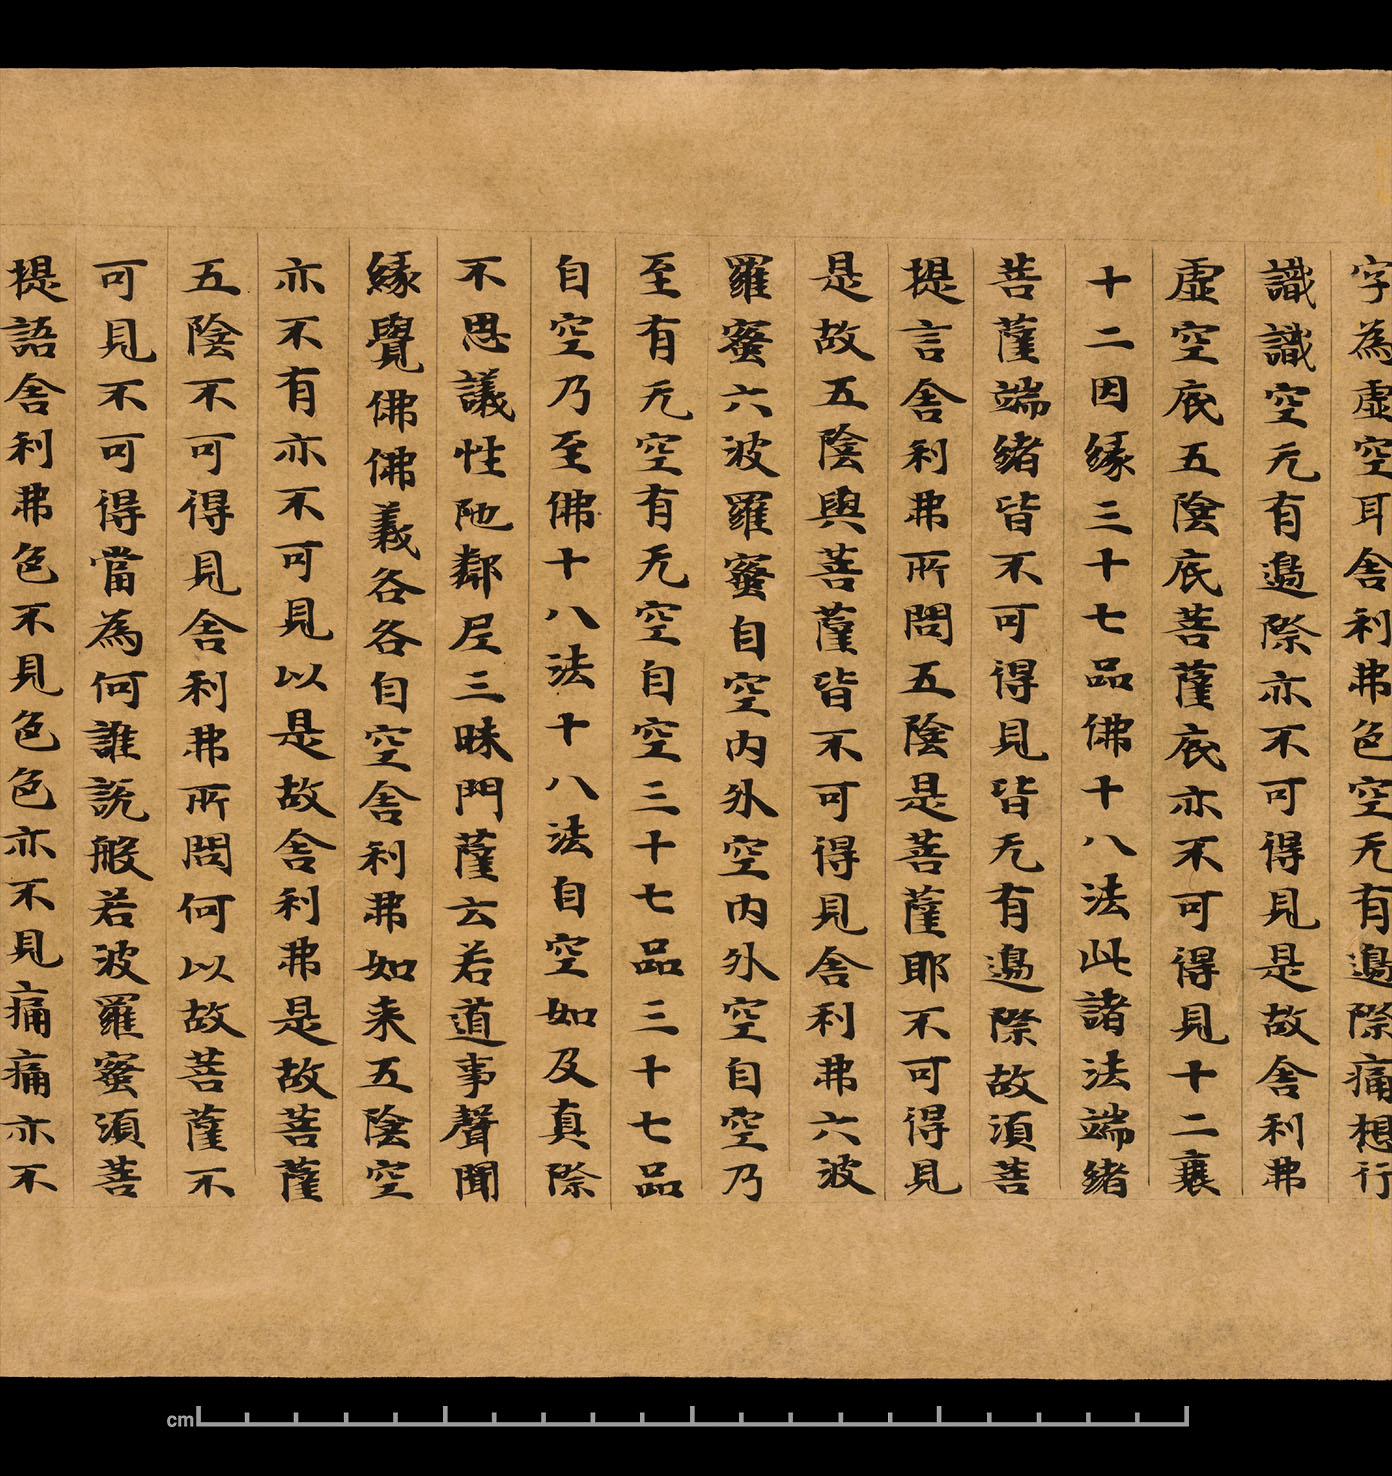 字為虛空耳舍利弗色空无有邊際痛想行
識識空无有邊際亦不可得見是故舍利弗
虛空底五陰底菩薩底亦不可得見十二衰
十二因緣三十七品佛十八法此諸法端緒
菩薩端緒皆不可得見皆无有邊際故須菩
提言舍利弗所問五陰是菩薩耶不可得見
是故五陰與菩薩皆不可得見舍利弗六波
羅蜜六波羅蜜自空內外空內外空自空乃
至有无空有无空自空三十七品三十七品
自空乃至佛十八法十八法自空如及真際
不思議性陁鄰尼三昧門薩云若道事聲聞
緣覺佛佛義各各自空舍利弗如来五陰空
亦不有亦不可見以是故舍利弗是故菩薩
五陰不可得見舍利弗所問何以故菩薩不
可見不可得當為何誰說般若波羅蜜須菩
提語舍利弗色不見色色亦不見痛痛亦不
cm